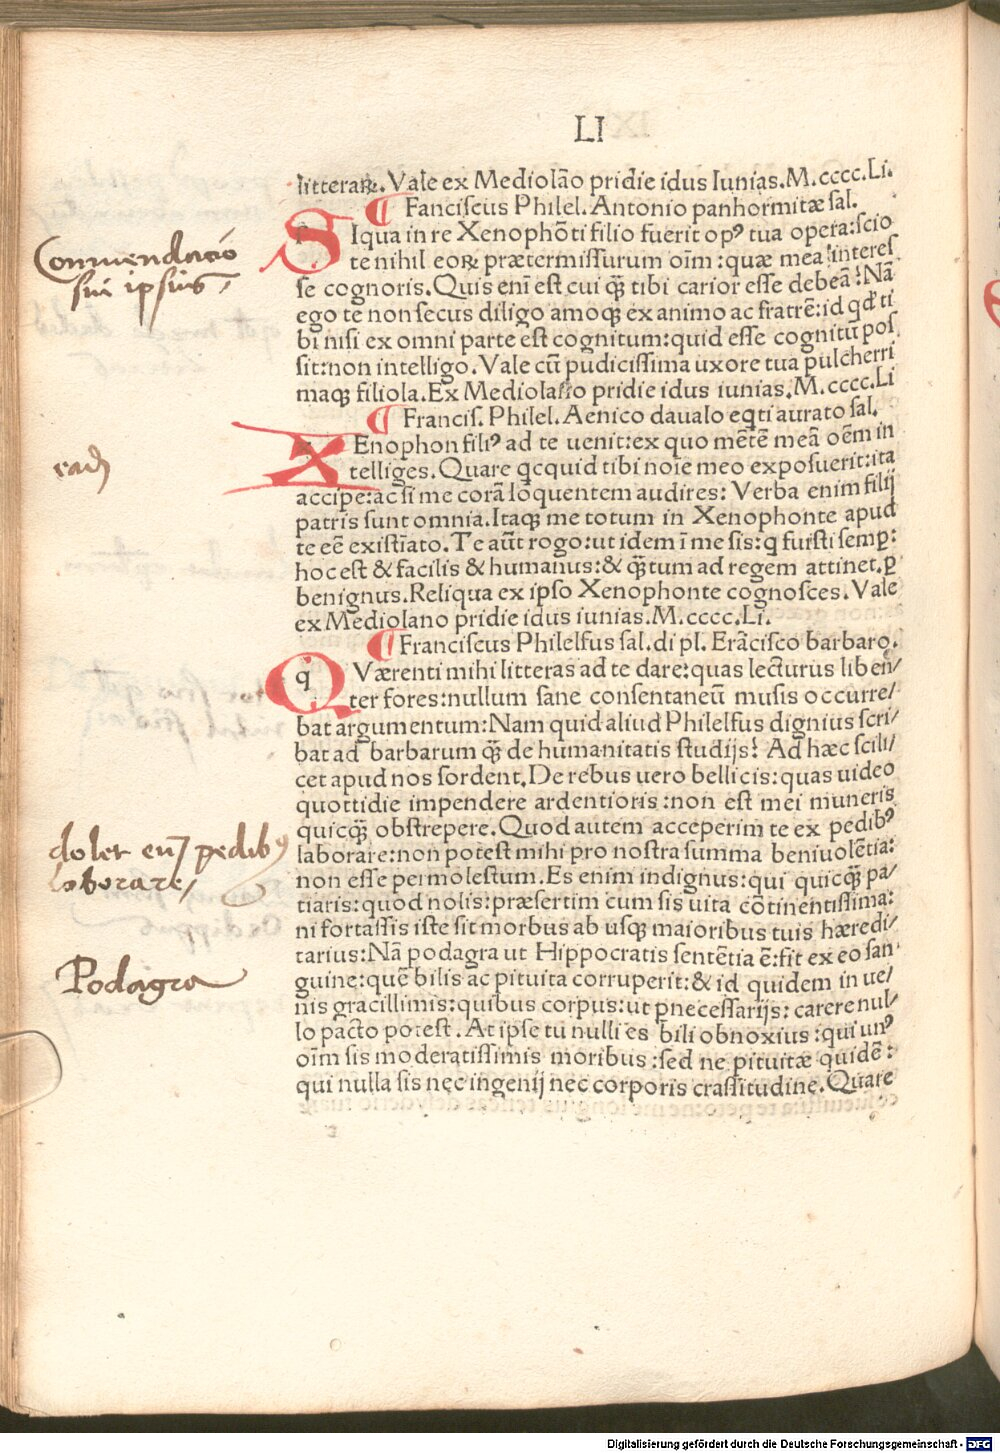 LI
litteraꝝ. Vale ex Mediolāo pridie idus Iunias. M. cccc. Li.
¶ Fanciscus Philel. Antonio panhormitæ sal.
SIqua in re Xenophōti filio fuerit opꝰ tua opera: scio
te nihil eoꝝ prætermissurum oīm: quæ mea interes
se cognoris. Quis enī est cui ꝙ̄ tibi carior esse debeā? Nā
ego te non secus diligo amoqꝫ ex animo ac fratrē: id qđ ti
bi nisi ex omni parte est cognitum: quid esse cognitū pos
sit: non intelligo. Vale cū pudicissima uxore tua pulcherri
maqꝫ filiola. Ex Mediolano pridie idus iunias. M. cccc. Li
¶ Francis. Philel. Aenico daualo eqti aurato sal.
XEnophon filiꝰ ad te uenit: ex quo mētē meā oēm in
telliges. Quare qcquid tibi noīe meo exposuerit: ita
accipe: ac si me corā loquentem audires: Verba enim filij
patris sunt omnia. Itaqꝫ me totum in Xenophonte apud
te eē existīato. Te aūt rogo: ut idem ī me sis: q fuisti semp̱:
hoc est & facilis & humanus: & ꝙ̄tum ad regem attinet. ꝑ
benignus. Reliqua ex ipso Xenophonte cognosces. Vale
ex Mediolano pridie idus iunias. M. cccc. Li.
¶ Franciscus Philelfus sal. di pl. Frācisco barbaro.
QVærenti mihi litteras ad te dare: quas lecturus liben/
ter fores: nullum sane consentaneū musis occurre/
bat argumentum: Nam quid aliud Philelfus dignius scri/
bat ad barbarum ꝙ̄ de humanitatis studijs? Ad hæc scili/
cet apud nos sordent. De rebus uero bellicis: quas uideo
quottidie impendere ardentioris: non est mei muneris
quicꝙ̄ obstrepere. Quod autem acceperim te ex pedibꝰ
laborare: non potest mihi pro nostra summa beniuolētia:
non esse permolestum. Es enim indignus: qui quicꝙ̄ pa/
tiaris: quod nolis: præsertim cum sis uita cōtinentissima:
ni fortassis iste sit morbus ab usqꝫ maioribus tuis hæredi/
tarius: Nā podagra ut Hippocratis sentētia ē: fit ex eo san
guine: quē bilis ac pituita corruperit: & id quidem in ue/
nis gracillimis: quibus corpus: ut pnecessarijs: carere nul/
lo pacto potest. At ipse tu nulli es bili obnoxius: qui unꝰ
oīm sis moderatissimis moribus: sed ne pituitæ quidē:
qui nulla sis nec ingenij nec corporis crassitudine. Quare
Commendacio
sui ipsius
eadē
dolet eū pedibꝰ
laborare
Podagra
Digitalisierung gefördert durch die Deutsche Forschungsgemeinschaft - DFG